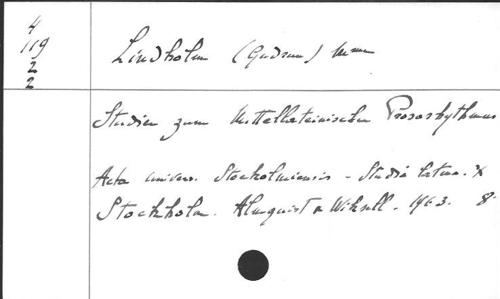 4
119
2
2
Lindholm (Gudrun) Mme
Studien zum Mittellateinischen Prosarhythmus
Acta univers. Stockholmiensis - Studia latina. X
Stockholm. Almquist & Wiksell. 1963. 8°